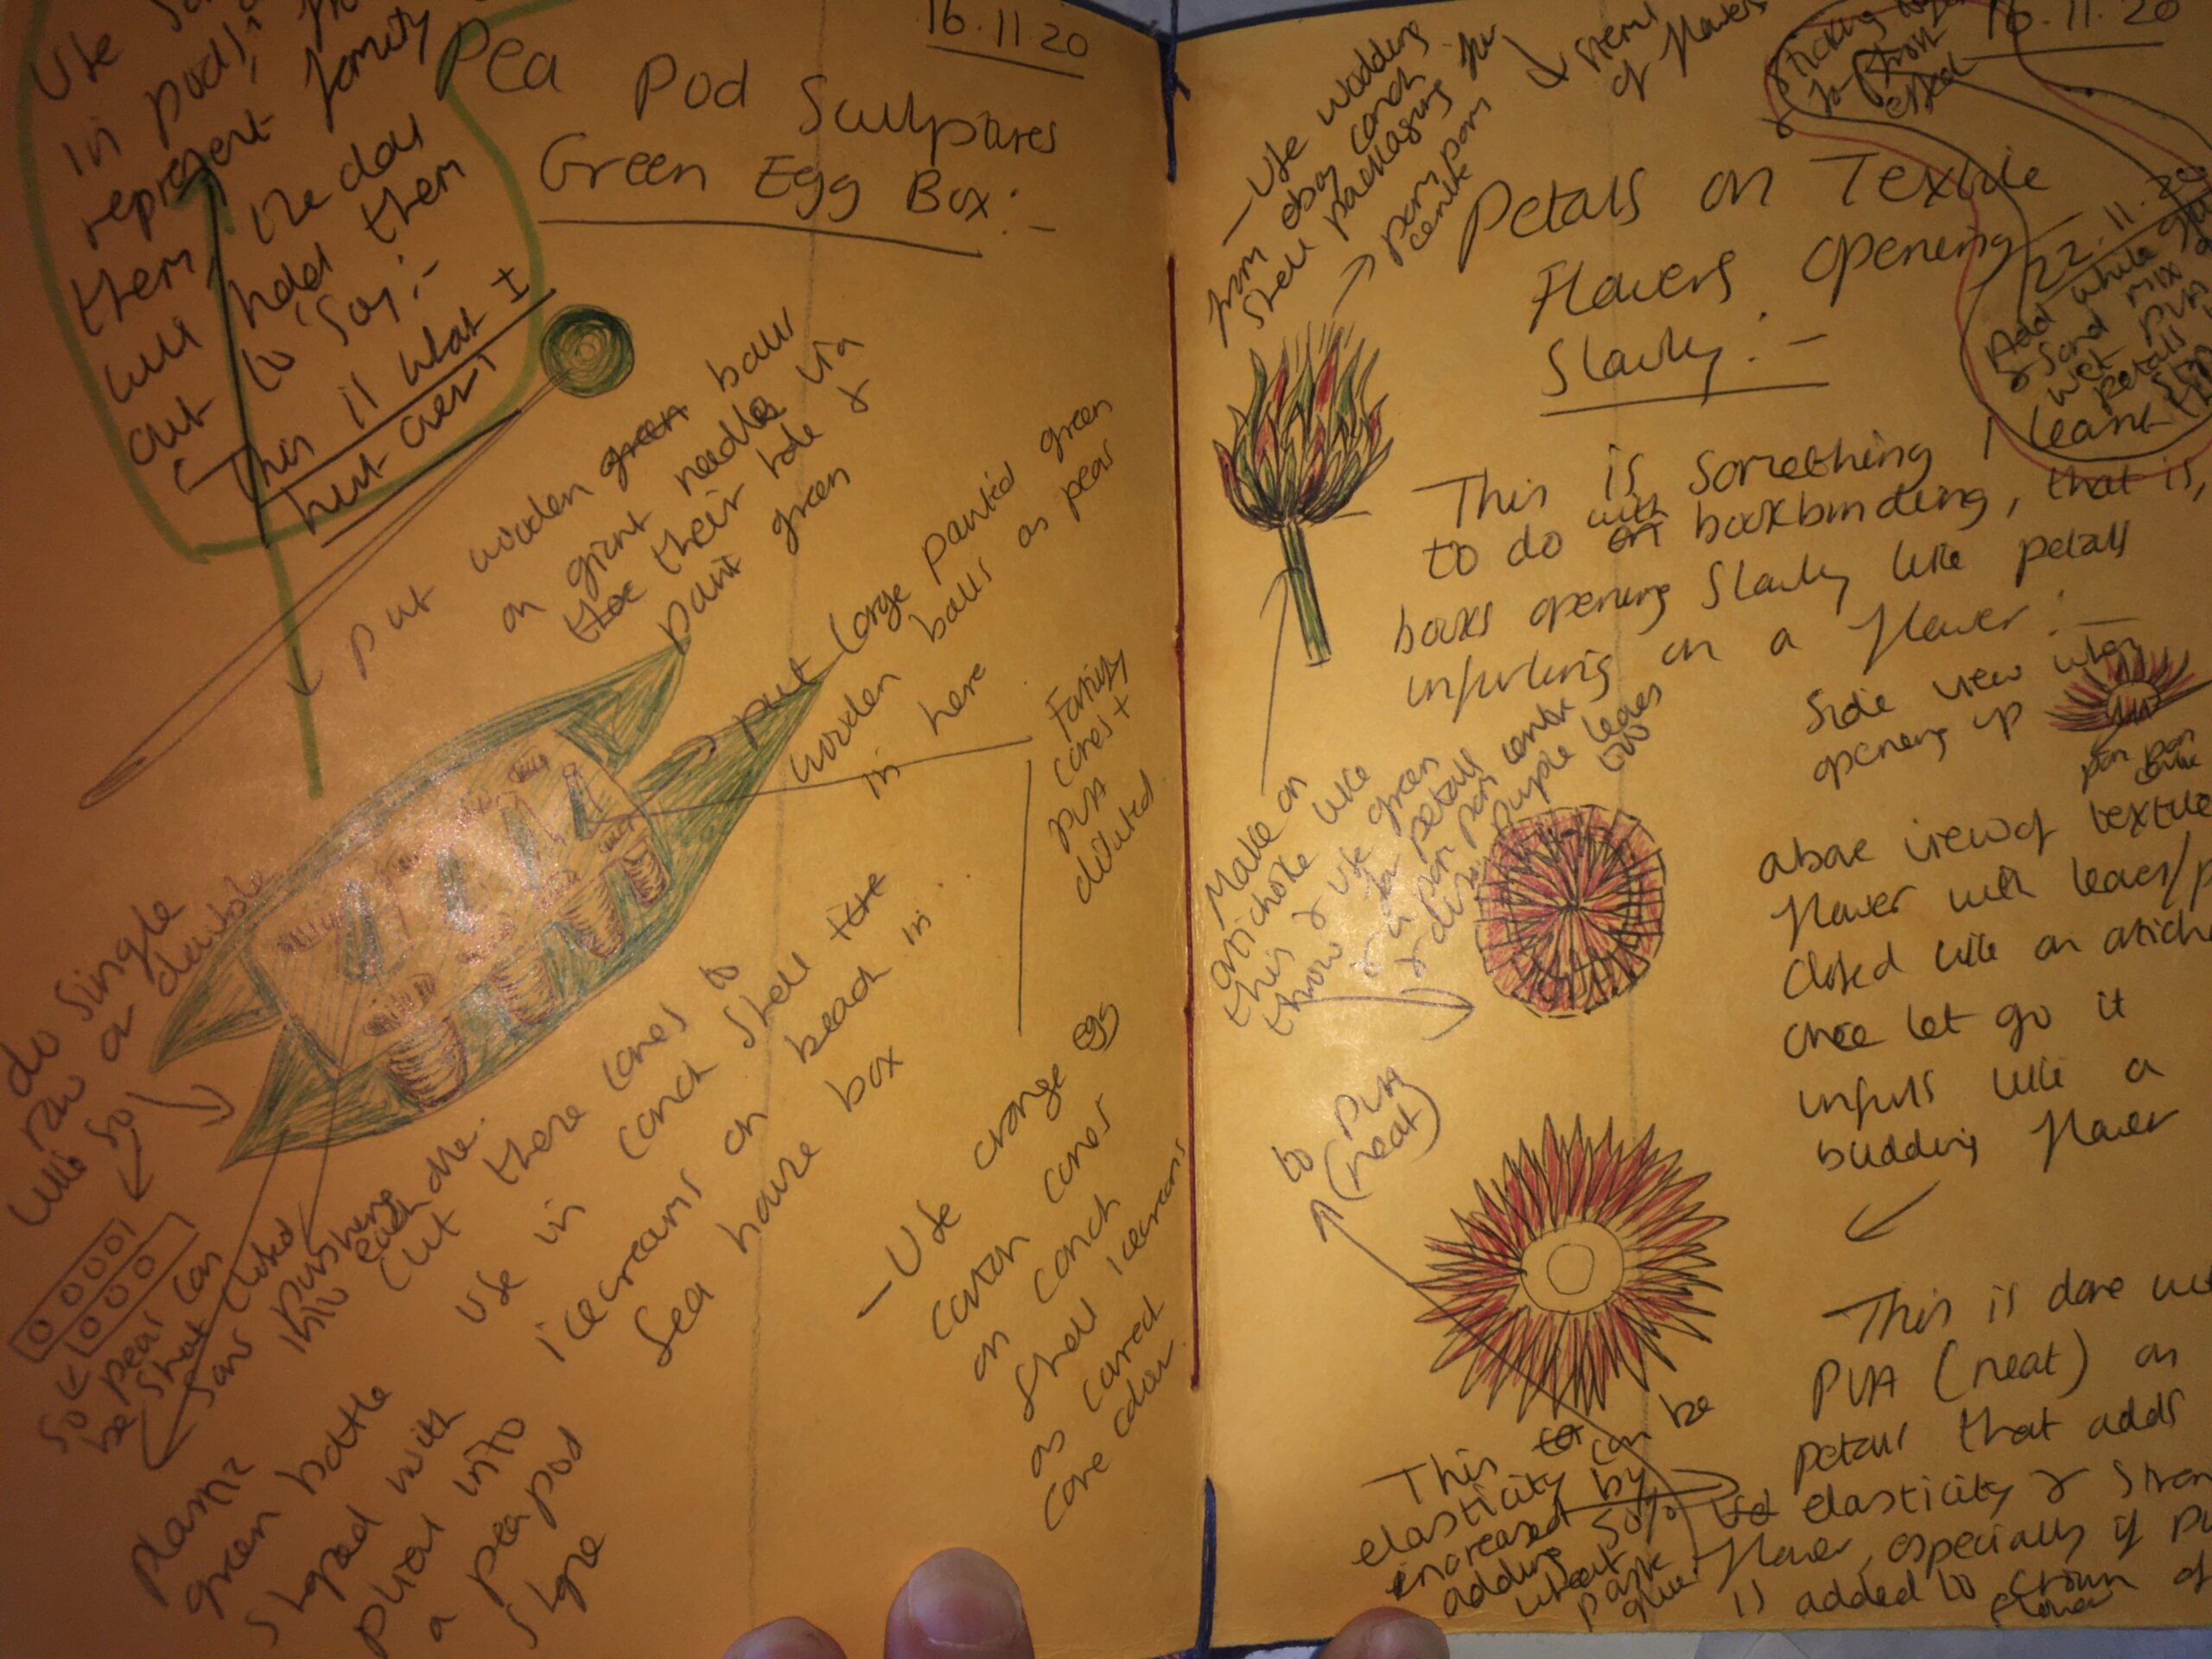 16.11.20
Pea Pod Sculptures
Green Egg Box:-
Use
in pods
represent family
them, the dolls
will hold them
out to 'say:-
'This is what I
hurt over'
put wooden green balls
on giant needles via
their hole &
paint green
put large painted green
wooden balls as peas
in here
Family
cones +
PVA
diluted
do single
row or double
like so
so
peas can
be shot closed
pushing
into each one.
Cut these cones to
use in conch shell
icecreams on beach in
sea house box
- Use orange egg
carton cones
on conch
shell icecreams
as cared
cone colour
plastic
green bottle
shaped with
pliers into
a pea pod
shape
16.11.20
- Use wadding
from ebay conch
shell packaging for
pom pom
centre
stems
of flowers
sticking
to
effect
Petals on Textile
Flowers Opening
Slowly:-
22.11.20
Add white
& sand mix
wet PVA
petals
This is something I learnt
to do with bookbinding, that is,
books opening slowly like petals
unfurling on a flower:-
Side view when
opening up
pom pom
centre
Make an
artichoke like
this & use green
throw
petals
pom pom centre
purple leaves
above view of textile
flower with leaves/
closed like an
once let go it
unfurls like a
budding flower
to PVA
(neat)
This is done
PVA (neat) on
petals that adds
elasticity &
flower, especially if
is added to crown of
flower
This can be
elasticity
increased by
adding 50%
wheat
paste
glue